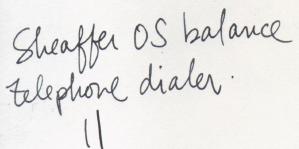 Sheaffer OS balance
telephone dialer.